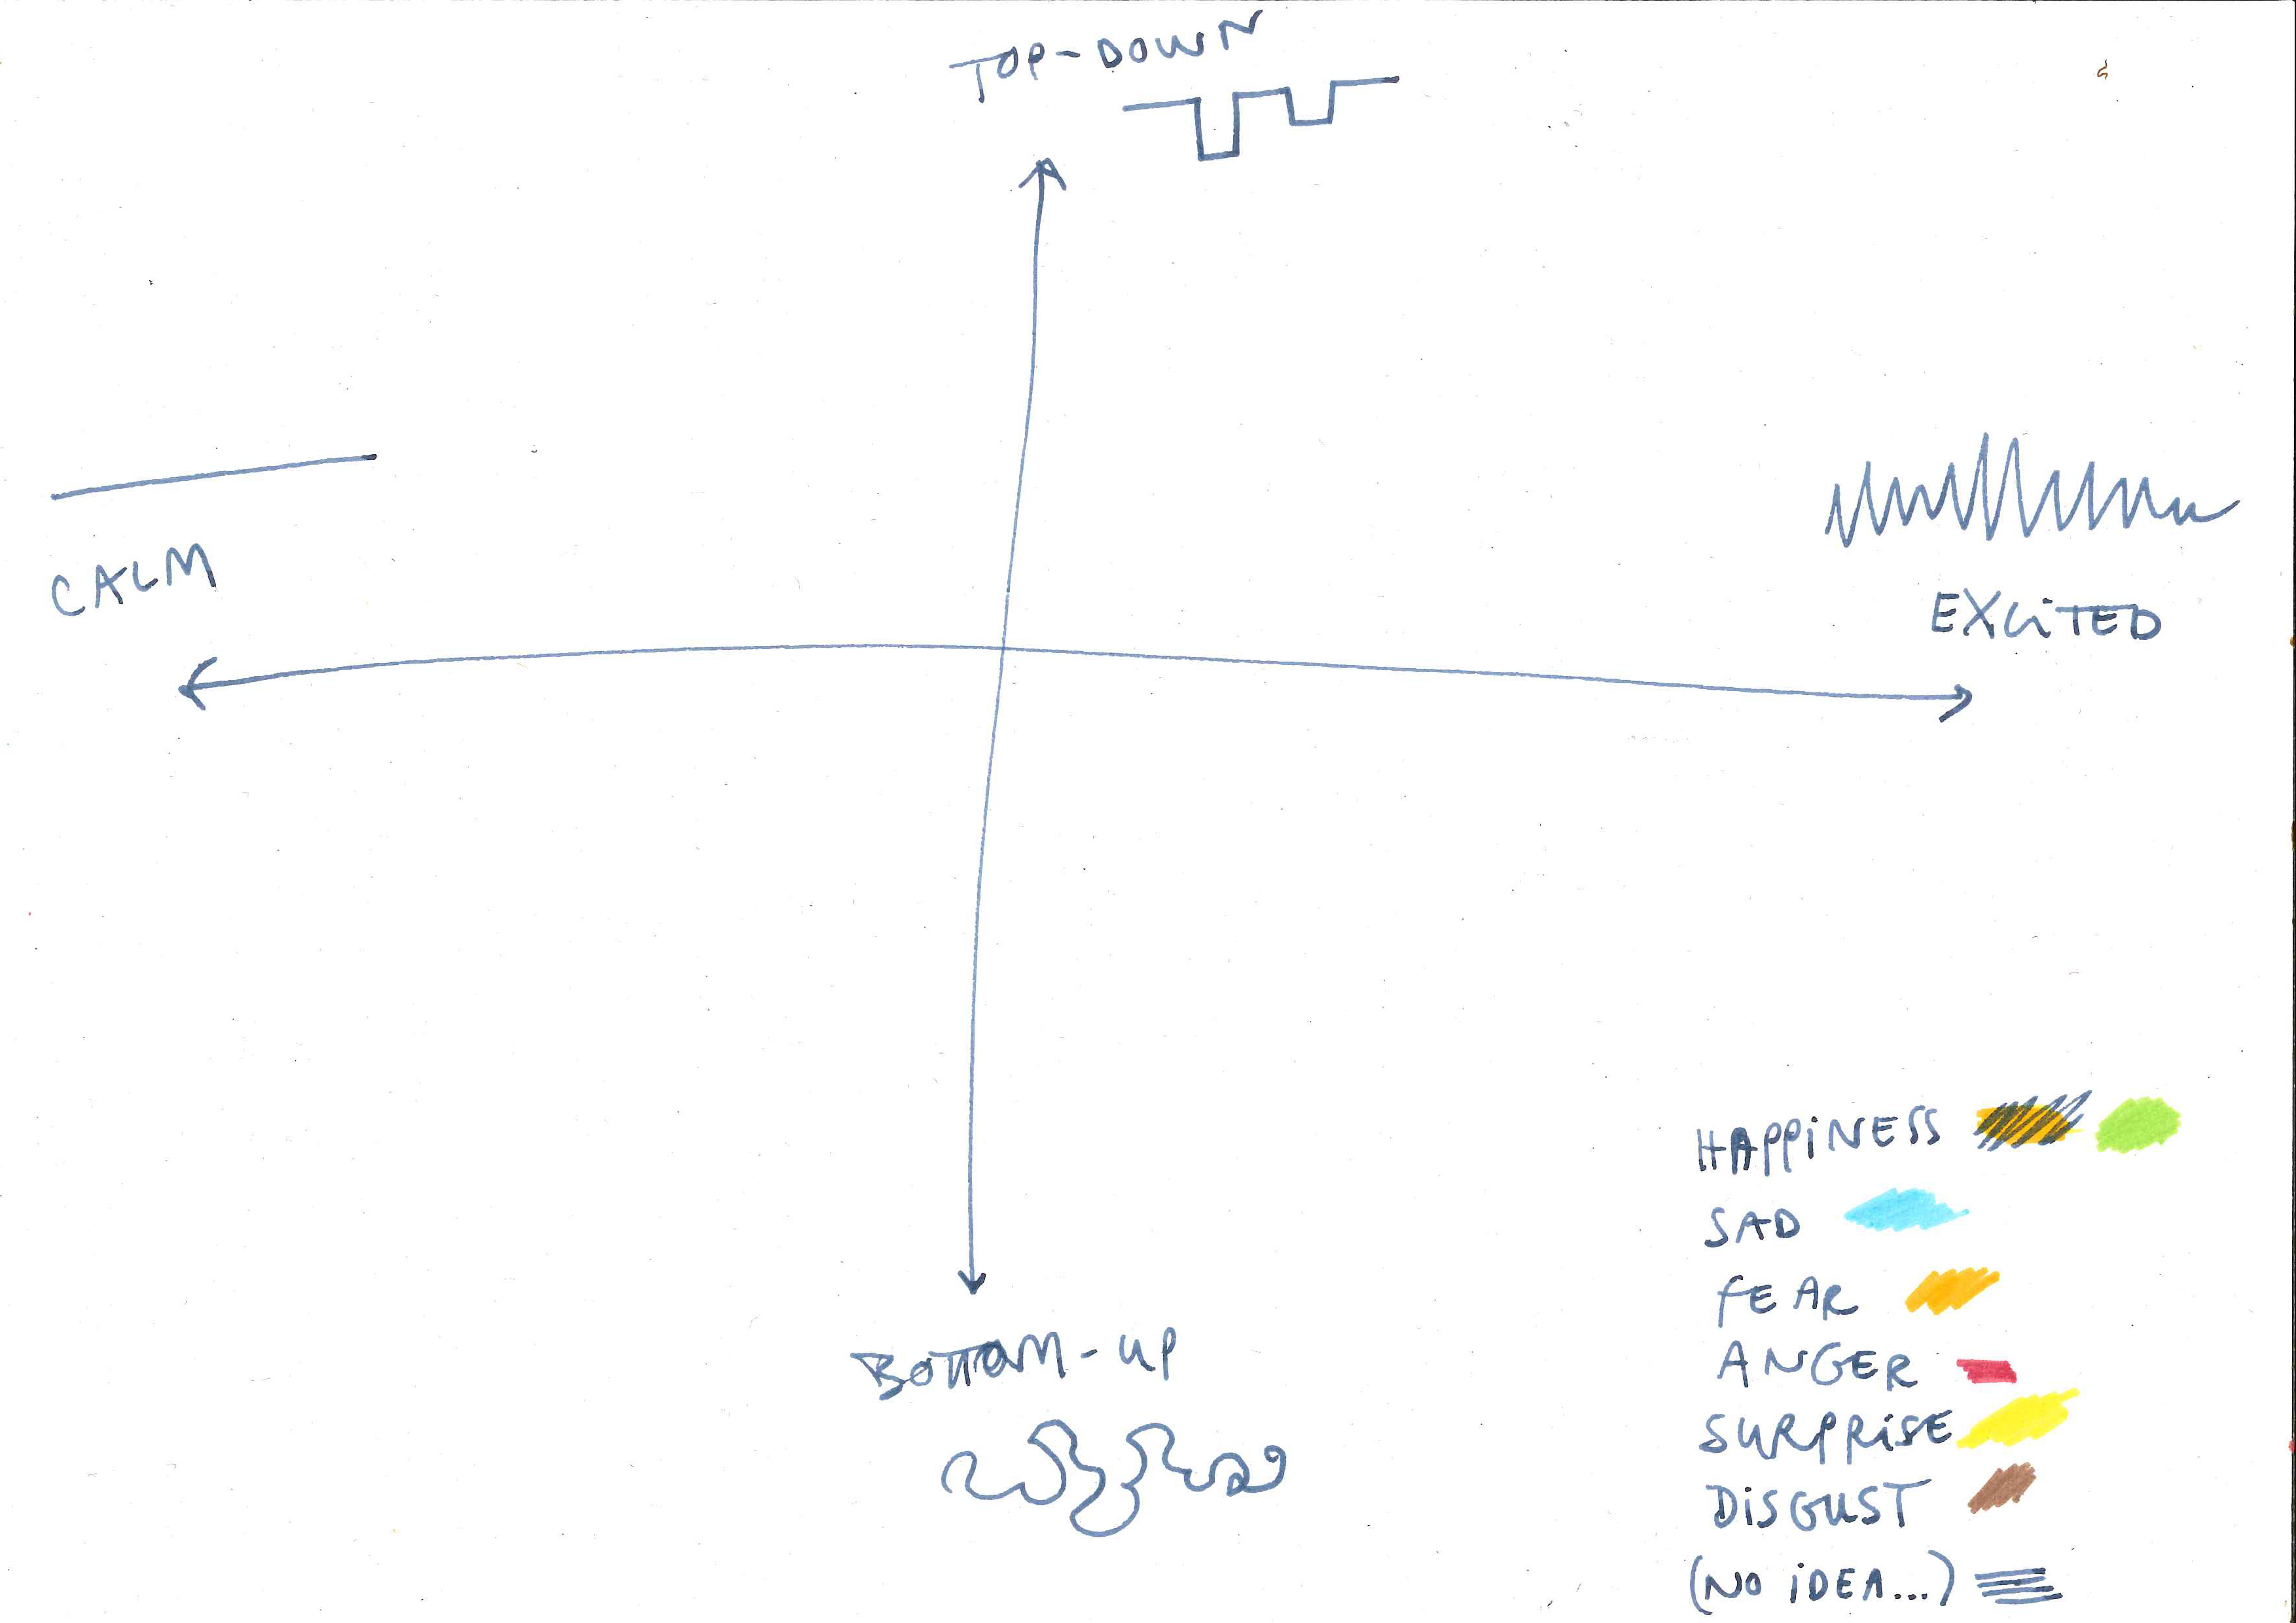 TOP-DOWN
CALM
EXCITED
BOTTOM-UP
HAPPINESS
SAD
FEAR
ANGER
SURPRISE
DISGUST
(NO IDEA...)